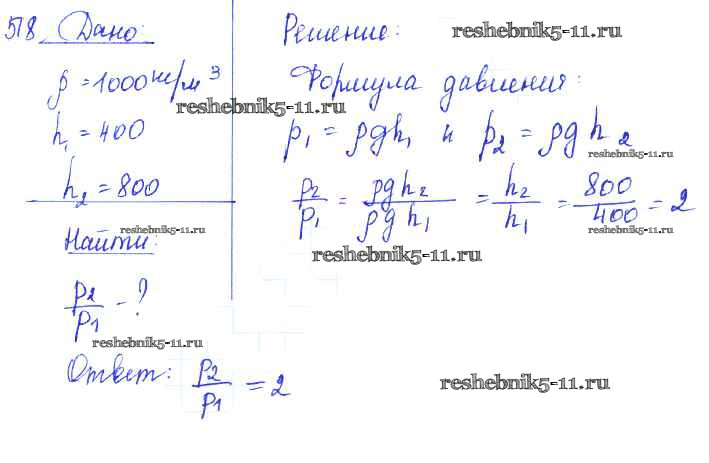 518 Дано:
ρ = 1000 кг/м³
h₁ = 400
h₂ = 800
Найти:
p₂/p₁ - ?
Ответ: p₂/p₁ = 2
Решение:
Формула давления:
p₁ = ρgh₁ и p₂ = ρgh₂
p₂/p₁ = ρgh₂/ρgh₁ = h₂/h₁ = 800/400 = 2
reshebnik5-11.ru
reshebnik5-11.ru
reshebnik5-11.ru
reshebnik5-11.ru
reshebnik5-11.ru
reshebnik5-11.ru
reshebnik5-11.ru
reshebnik5-11.ru